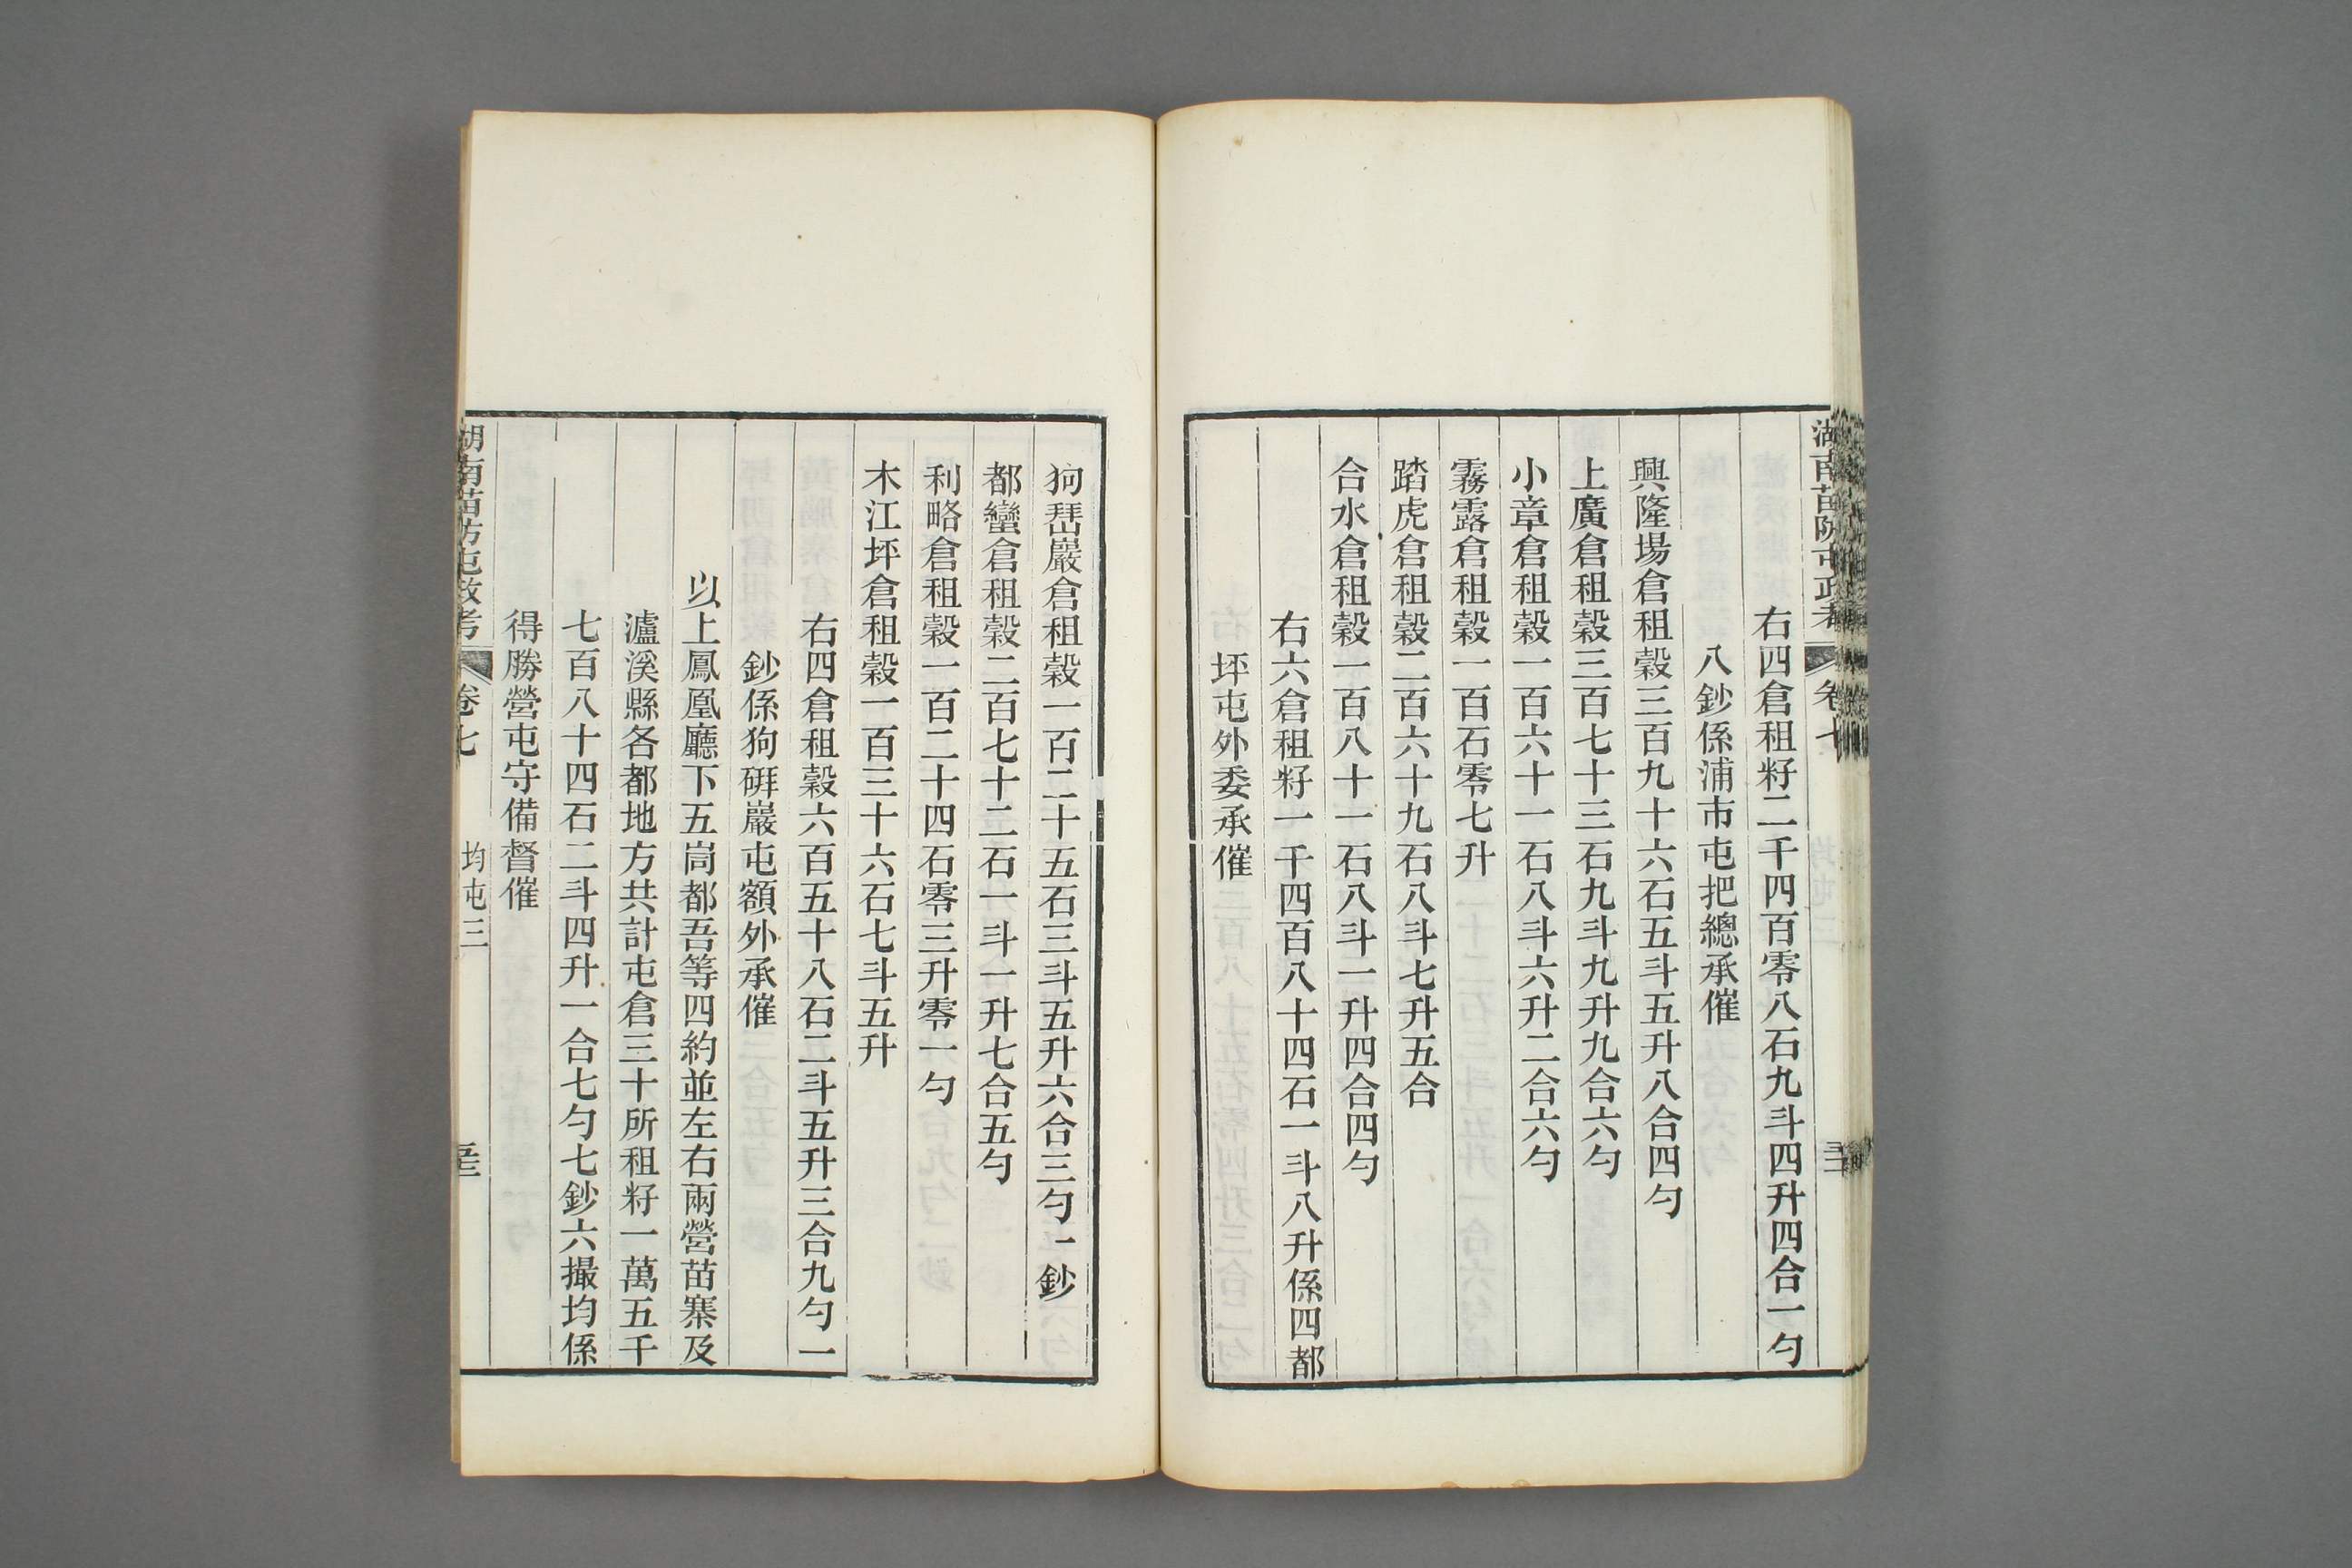 湖南苗防屯政考 卷七
右四倉租籽二千四百零八石九斗四升四合一勺
八鈔係浦市屯把總承催
興隆場倉租穀三百九十六石五斗五升八合四勺
上廣倉租穀三百七十三石九斗九升九合六勺
小章倉租穀一百六十一石八斗六升二合六勺
霧露倉租穀一百石零七升
踏虎倉租穀二百六十九石八斗七升五合
合水倉租穀一百八十一石八斗一升四合四勺
右六倉租籽一千四百八十四石一斗八升係四都
坪屯外委承催
狗巖倉租穀一百二十五石三斗五升六合三勺一鈔
都蠻倉租穀二百七十二石一斗一升七合五勺
利略倉租穀一百二十四石零三升零一勺
木江坪倉租穀一百三十六石七斗五升
右四倉租穀六百五十八石二斗五升三合九勺一
鈔係狗硑巖屯額外承催
以上鳳凰廳下五峝都吾等四約並左右兩營苗寨及
瀘溪縣各都地方共計屯倉三十所租籽一萬五千
七百八十四石二斗四升一合七勺七鈔六撮均係
得勝營屯守備督催
湖南苗防屯政考 卷七 均屯三